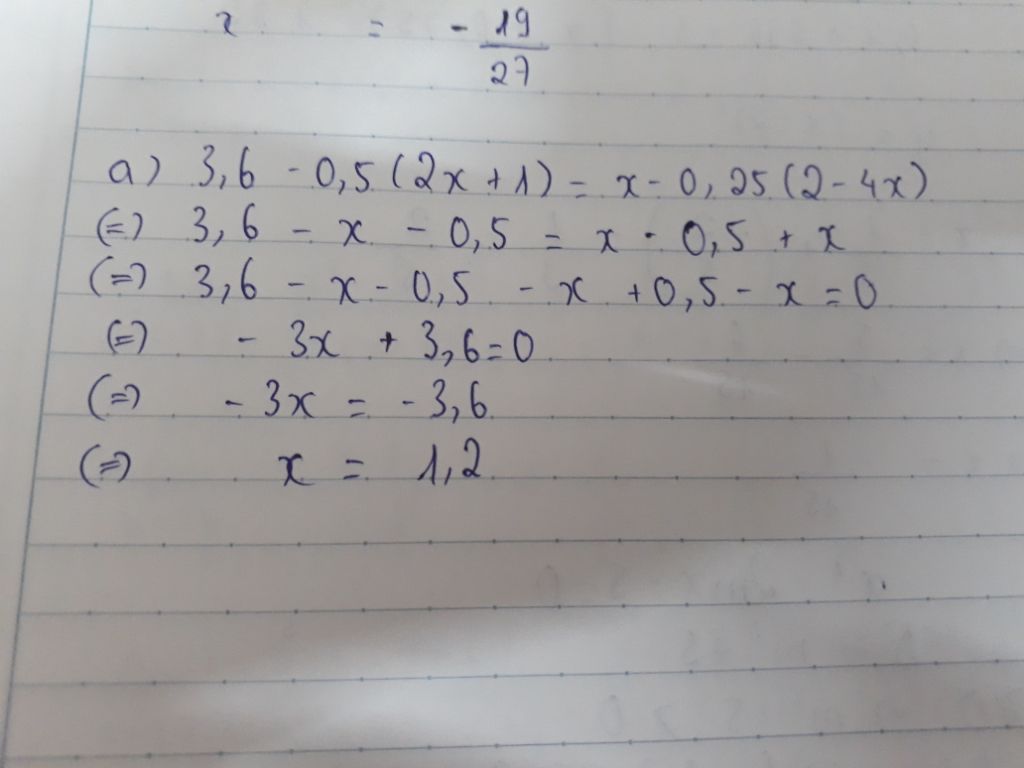 x = - 19/27
a) 3,6 - 0,5 (2x + 1) = x - 0,25 (2 - 4x)
(=) 3,6 - x - 0,5 = x - 0,5 + x
(=) 3,6 - x - 0,5 - x + 0,5 - x = 0
(=) - 3x + 3,6 = 0
(=) - 3x = - 3,6
(=) x = 1,2